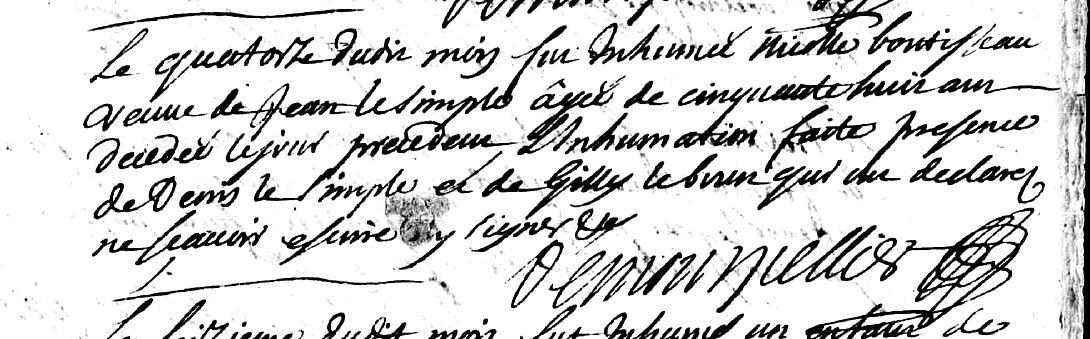 Le quatorze dudit mois fut Inhumeé Nicolle boutisseau
veuve de Jean le simple âgeé de cinquante huit ans
decedeé le jour precedent, L'Inhumation faite presence
de Denis le simple et de Gilles le brun qui ont declarez
ne scavoir escrire ny signer
Demonpellier
Le seizieme dudit mois fut Inhumé un enfant de